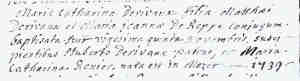 Maria Catharina Derivaux filia Matthaei
Derivaux et Maria Joanna de Reppe conjugum
baptizata fuit vigesima quinta 9bris, sus
cipientibus Huberto Derivaux patruo, et Maria
Catharina Renier, nata est in Mozet 1739